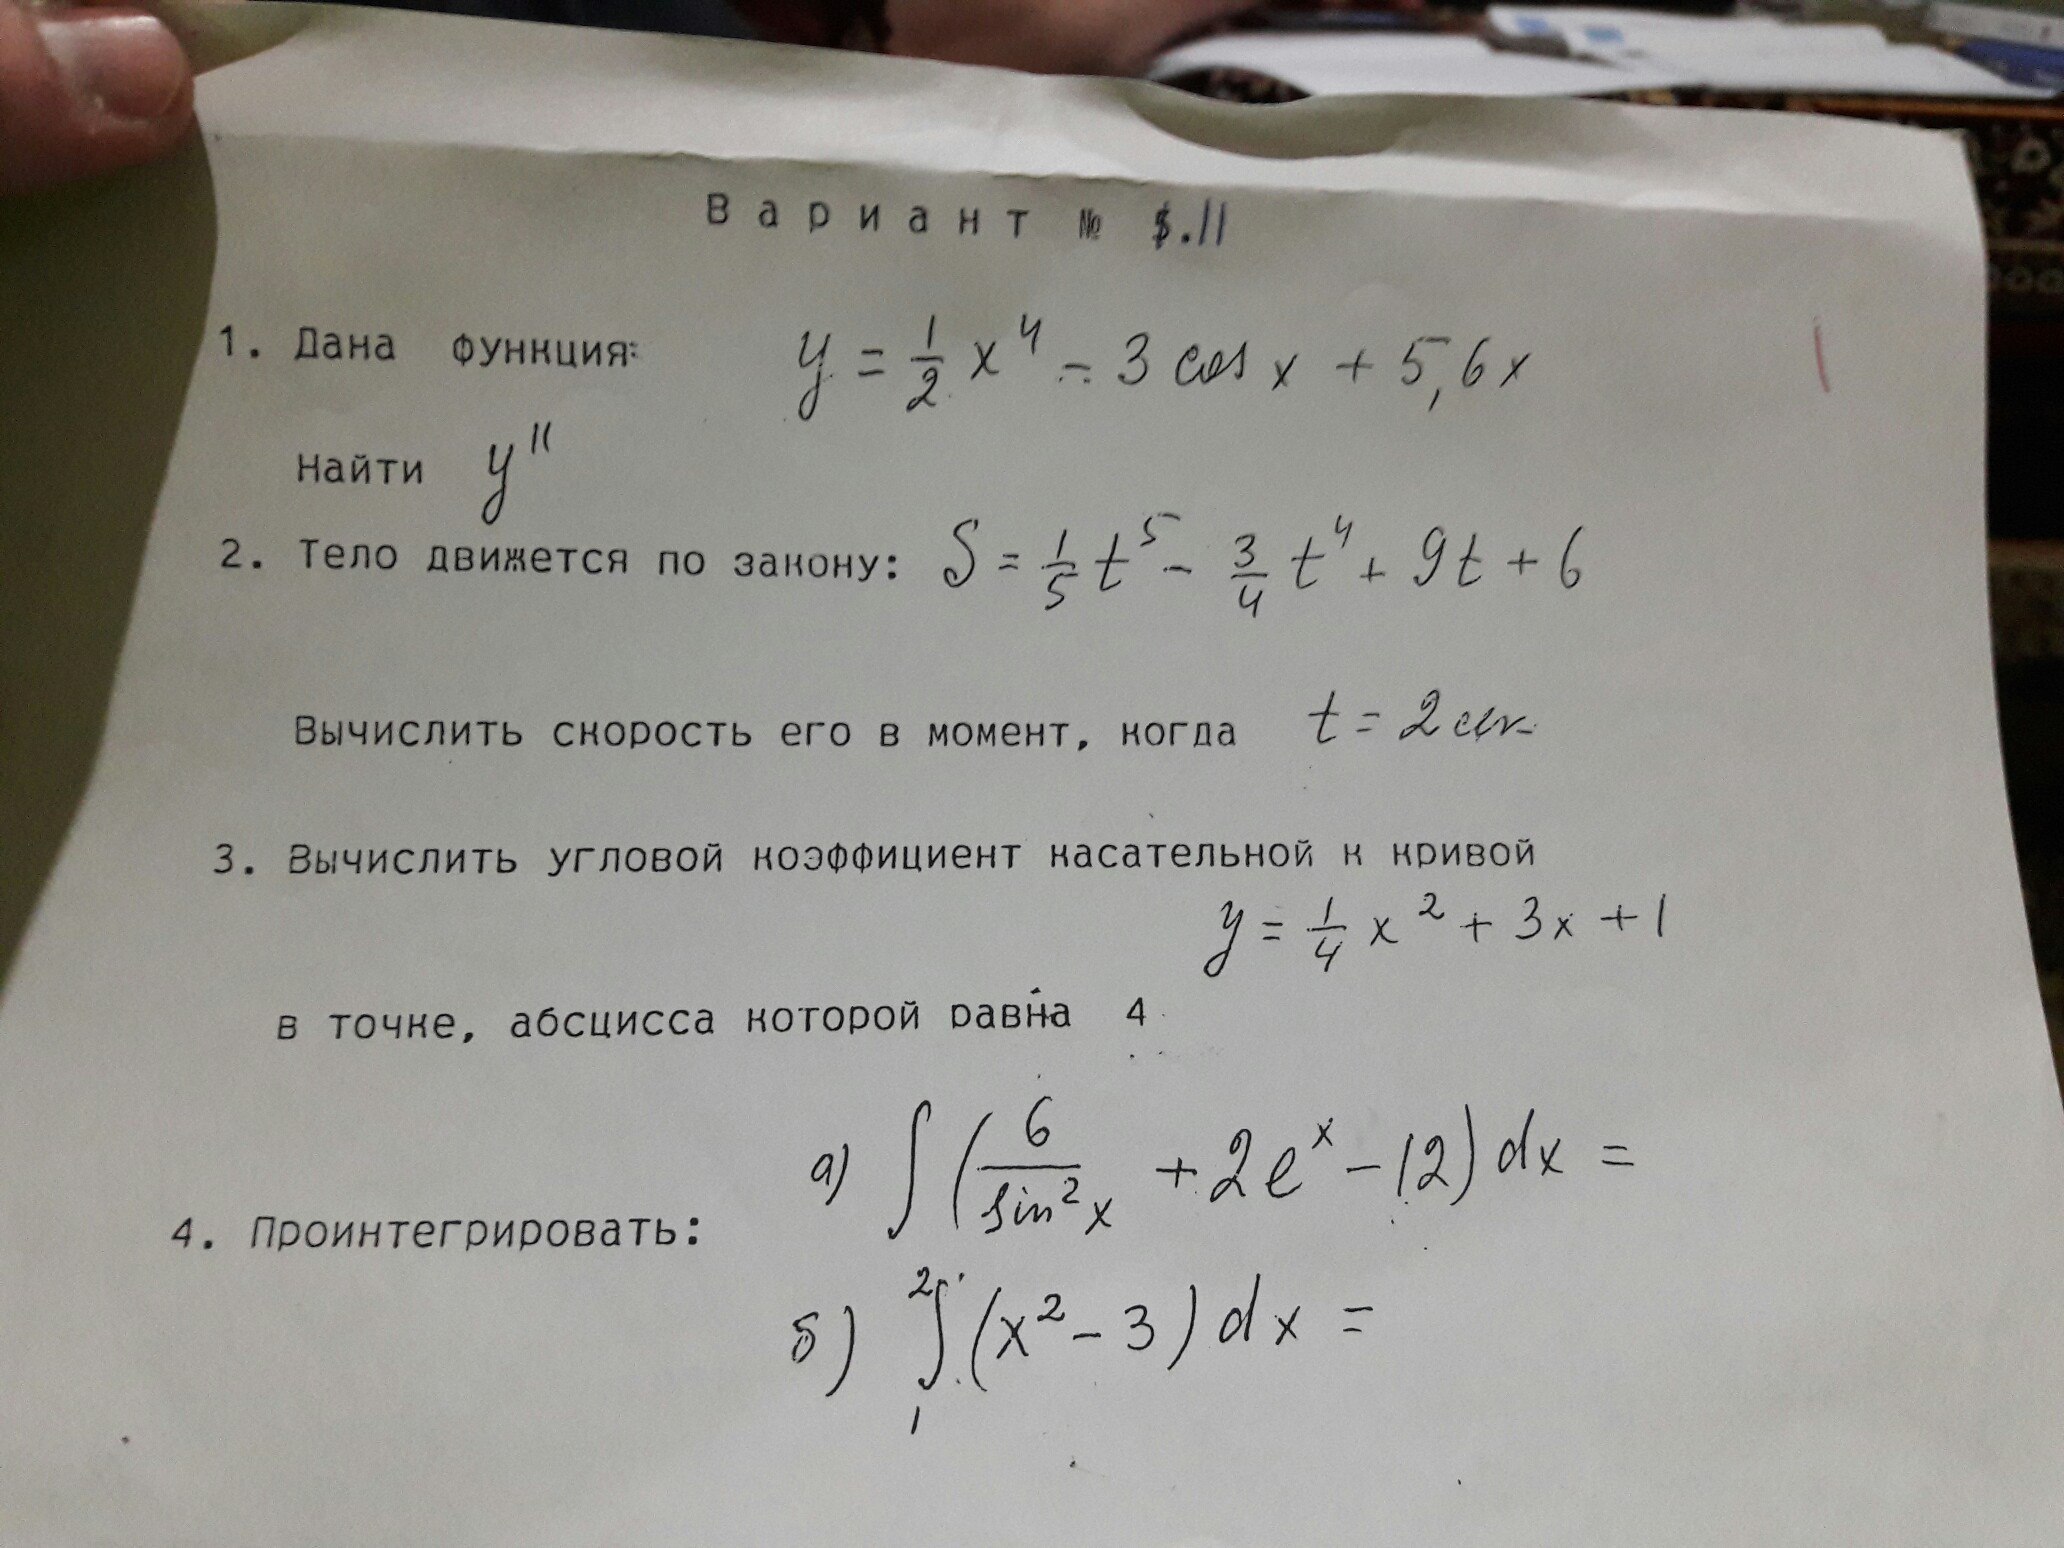 Вариант № 8.11
1. Дана функция: y = 1/2 x⁴ - 3 cos x + 5,6x
Найти y''
2. Тело движется по закону: S = 1/5 t⁵ - 3/4 t⁴ + 9t + 6
Вычислить скорость его в момент, когда t = 2 сек
3. Вычислить угловой коэффициент касательной к кривой
y = 1/4 x² + 3x + 1
в точке, абсцисса которой равна 4
а) ∫ (6/sin²x + 2eˣ - 12) dx =
4. Проинтегрировать:
б) ₁∫² (x² - 3) dx =